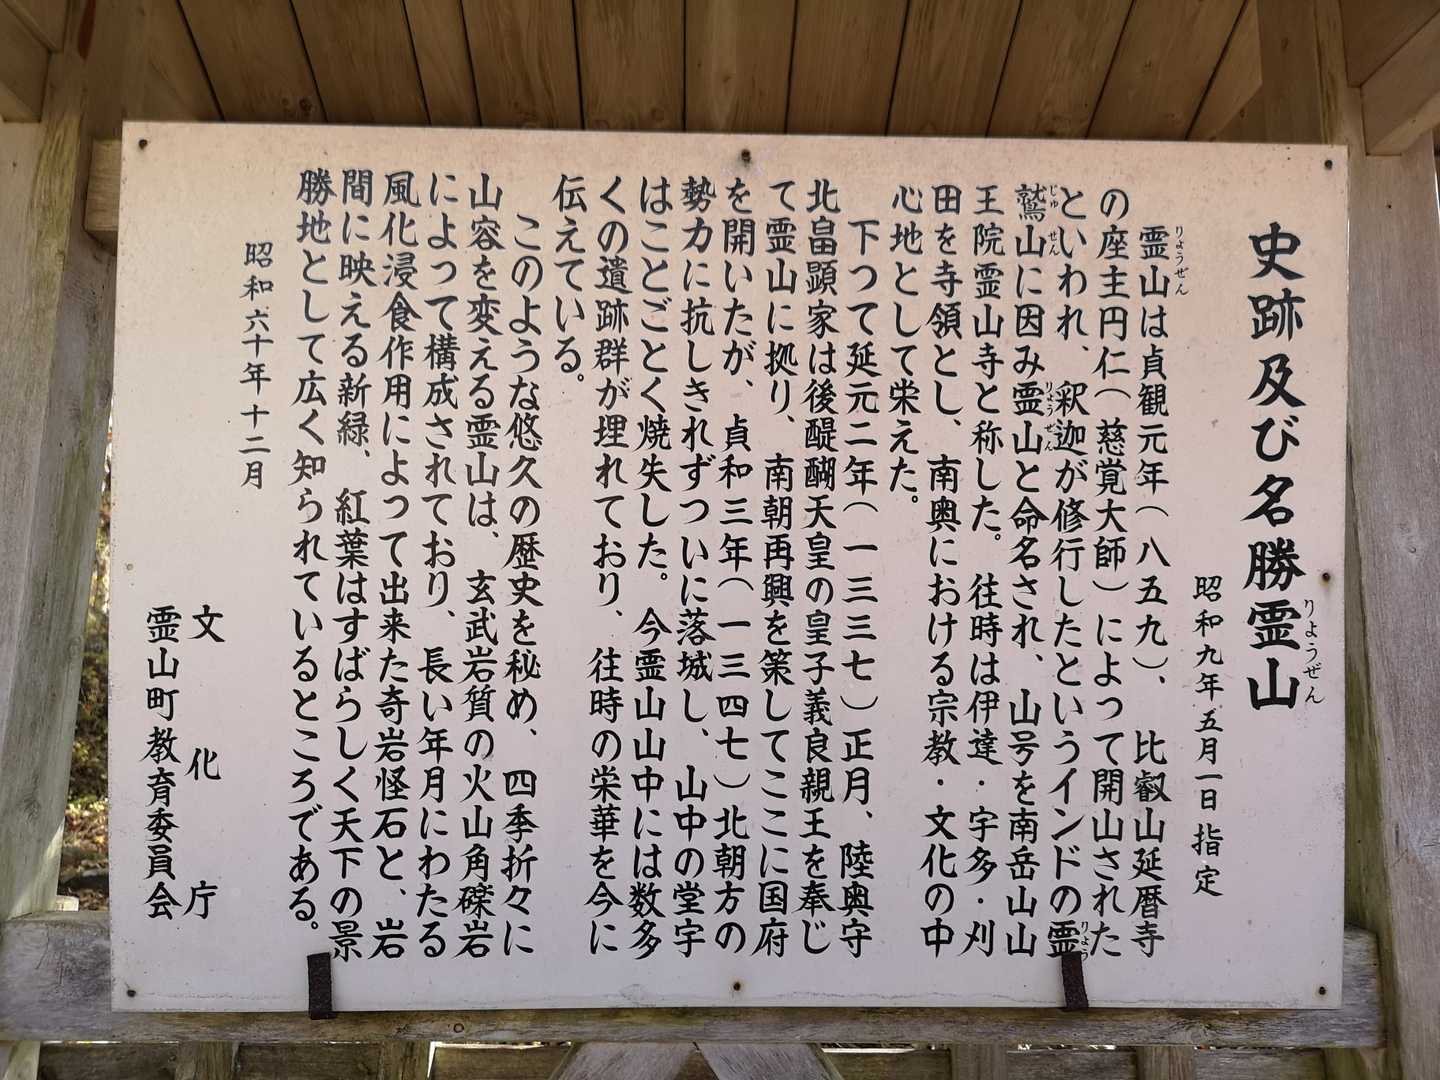 史跡及び名勝霊山
りょうぜん
昭和九年五月一日指定
霊山は貞観元年（八五九）、比叡山延暦寺
りょうぜん
の座主円仁（慈覚大師）によって開山された
といわれ、釈迦が修行したというインドの霊
りょう
鷲山に因み霊山と命名され、山号を南岳山山
じゅせん
りょうぜん
王院霊山寺と称した。往時は伊達・宇多・刈
田を寺領とし、南奥における宗教・文化の中
心地として栄えた。
下つて延元二年（一三三七）正月、陸奥守
北畠顕家は後醍醐天皇の皇子義良親王を奉じ
て霊山に拠り、南朝再興を策してここに国府
を開いたが、貞和三年（一三四七）北朝方の
勢力に抗しきれずついに落城し、山中の堂宇
はことごとく焼失した。今霊山山中には数多
くの遺跡群が埋れており、往時の栄華を今に
伝えている。
このような悠久の歴史を秘め、四季折々に
山容を変える霊山は、玄武岩質の火山角礫岩
によって構成されており、長い年月にわたる
風化浸食作用によって出来た奇岩怪石と、岩
間に映える新緑、紅葉はすばらしく天下の景
勝地として広く知られているところである。
昭和六十年十二月
文化庁
霊山町教育委員会